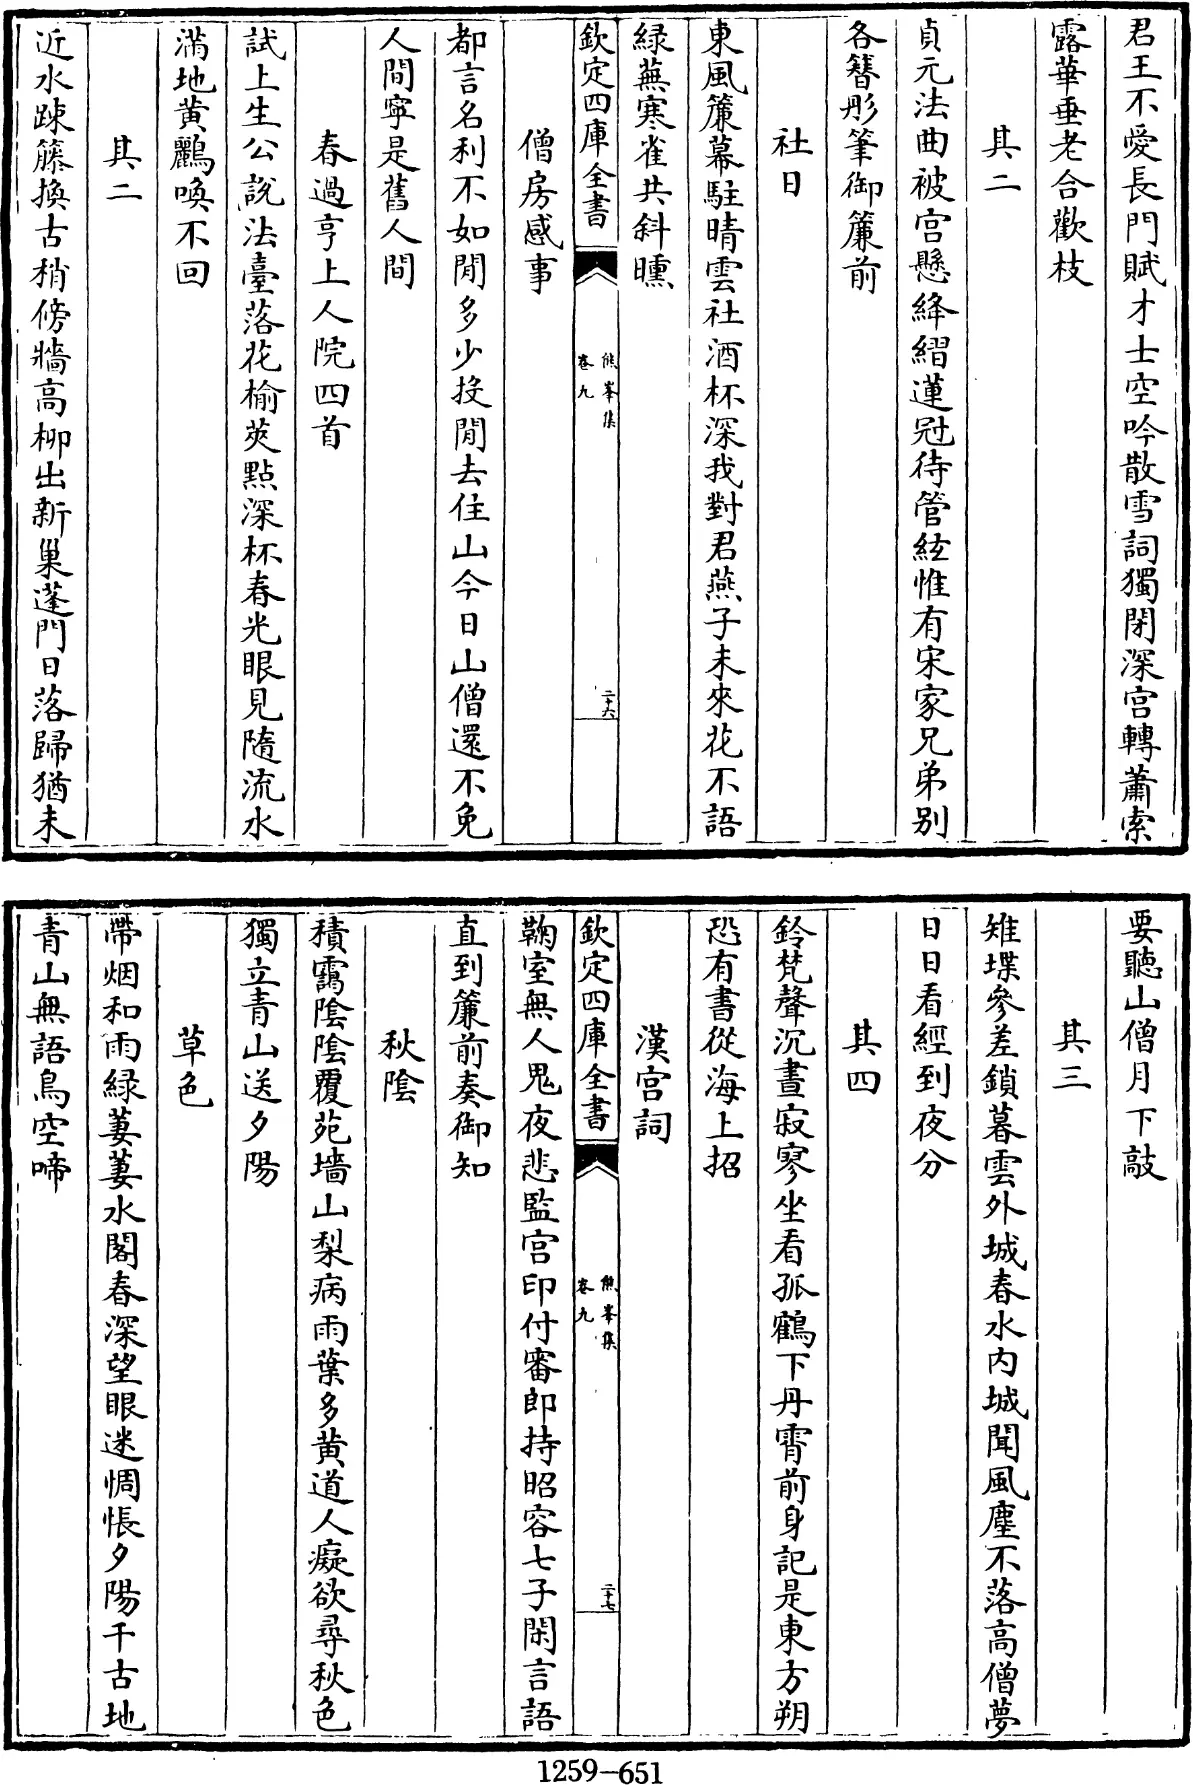 君王不愛長門賦才士空吟散雪詞獨閉深宫轉蕭索
露華垂老合歡枝
其二
貞元法曲被宫懸絳縉蓮冠待管絃惟有宋家兄弟别
各簪彤筆御簾前
社日
東風簾幕駐晴雲社酒杯深我對君燕子未來花不語
緑蕪寒雀共斜曛
欽定四庫全書
熊峯集
卷九
二十六
僧房感事
都言名利不如閒多少投閒去住山今日山僧還不免
人間寧是舊人間
春過亨上人院四首
試上生公說法臺落花榆莢點深杯春光眼見隨流水
滿地黄鸝喚不回
其二
近水疎籐換古梢傍牆高柳出新巢蓬門日落歸猶未
要聽山僧月下敲
其三
雉堞參差鎖暮雲外城春水内城聞風塵不落高僧夢
日日看經到夜分
其四
鈴梵聲沉晝寂寥坐看孤鶴下丹霄前身記是東方朔
恐有書從海上招
漢宫詞
欽定四庫全書
熊峯集
卷九
二十七
鞫室無人鬼夜悲監宫印付審郎持昭容七子閑言語
直到簾前奏御知
秋陰
積靄陰陰覆苑墻山梨病雨葉多黄道人癡欲尋秋色
獨立青山送夕陽
草色
帶烟和雨緑萋萋水閣春深望眼迷惆悵夕陽千古地
青山無語鳥空啼
1259—651